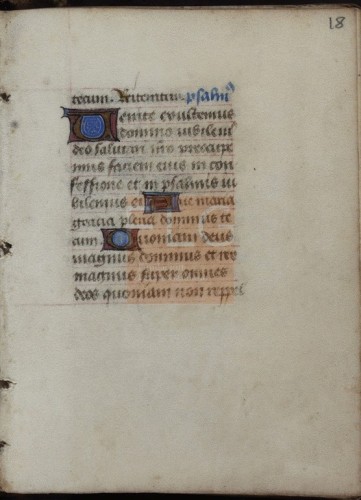 18
tecum. Venite psalm9
Venite exultemus
domino iubilem9
deo salutari nr̄o preocupe
mus faciem eius in con
fessione et in psalmis iu
bilemus ei Aue maria
gracia plena dominus te
cum. Quoniam deus
magnus dominus et rex
magnus super omnes
deos quoniam non reppel